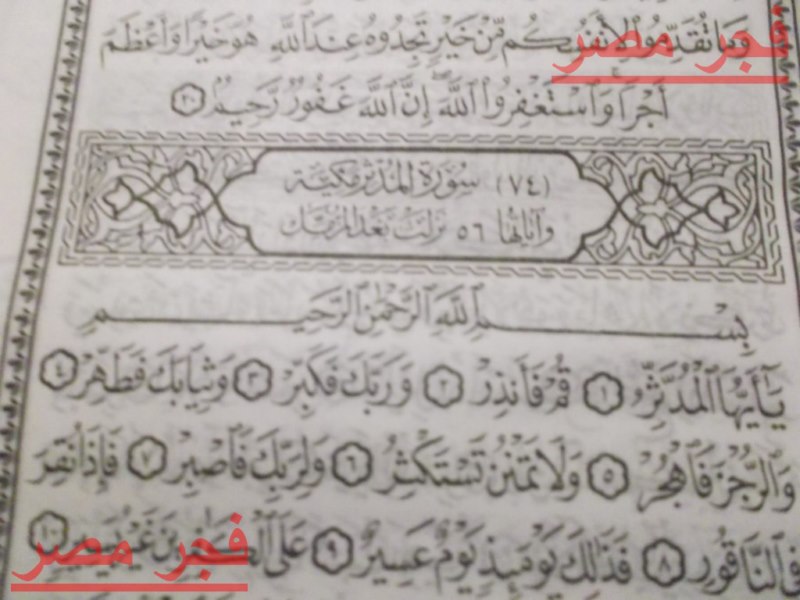 وَمَا تُقَدِّمُوا۟ لِأَنفُسِكُم مِّنْ خَيْرٍ تَجِدُوهُ عِندَ ٱللَّهِ هُوَ خَيْرًا وَأَعْظَمَ
فجر مصر
أَجْرًا وَٱسْتَغْفِرُوا۟ ٱللَّهَ إِنَّ ٱللَّهَ غَفُورٌ رَّحِيمٌ ٢٠
(٧٤) سُورَةُ المُدَّثِّرِ مَكِيَّة
وَآيَاتُهَا ٥٦ نَزَلَتْ بَعْدَ المُزَّمِّل
بِسْمِ ٱللَّهِ ٱلرَّحْمَٰنِ ٱلرَّحِيمِ
يَٰٓأَيُّهَا ٱلْمُدَّثِّرُ ١ قُمْ فَأَنذِرْ ٢ وَرَبَّكَ فَكَبِّرْ ٣ وَثِيَابَكَ فَطَهِّرْ ٤
وَٱلرُّجْزَ فَٱهْجُرْ ٥ وَلَا تَمْنُن تَسْتَكْثِرُ ٦ وَلِرَبِّكَ فَٱصْبِرْ ٧ فَإِذَا نُقِرَ
فِى ٱلنَّاقُورِ ٨ فَذَٰلِكَ يَوْمَئِذٍ يَوْمٌ عَسِيرٌ ٩ عَلَى ٱلْكَٰفِرِينَ غَيْرُ يَسِيرٍ ١٠
فجر مصر